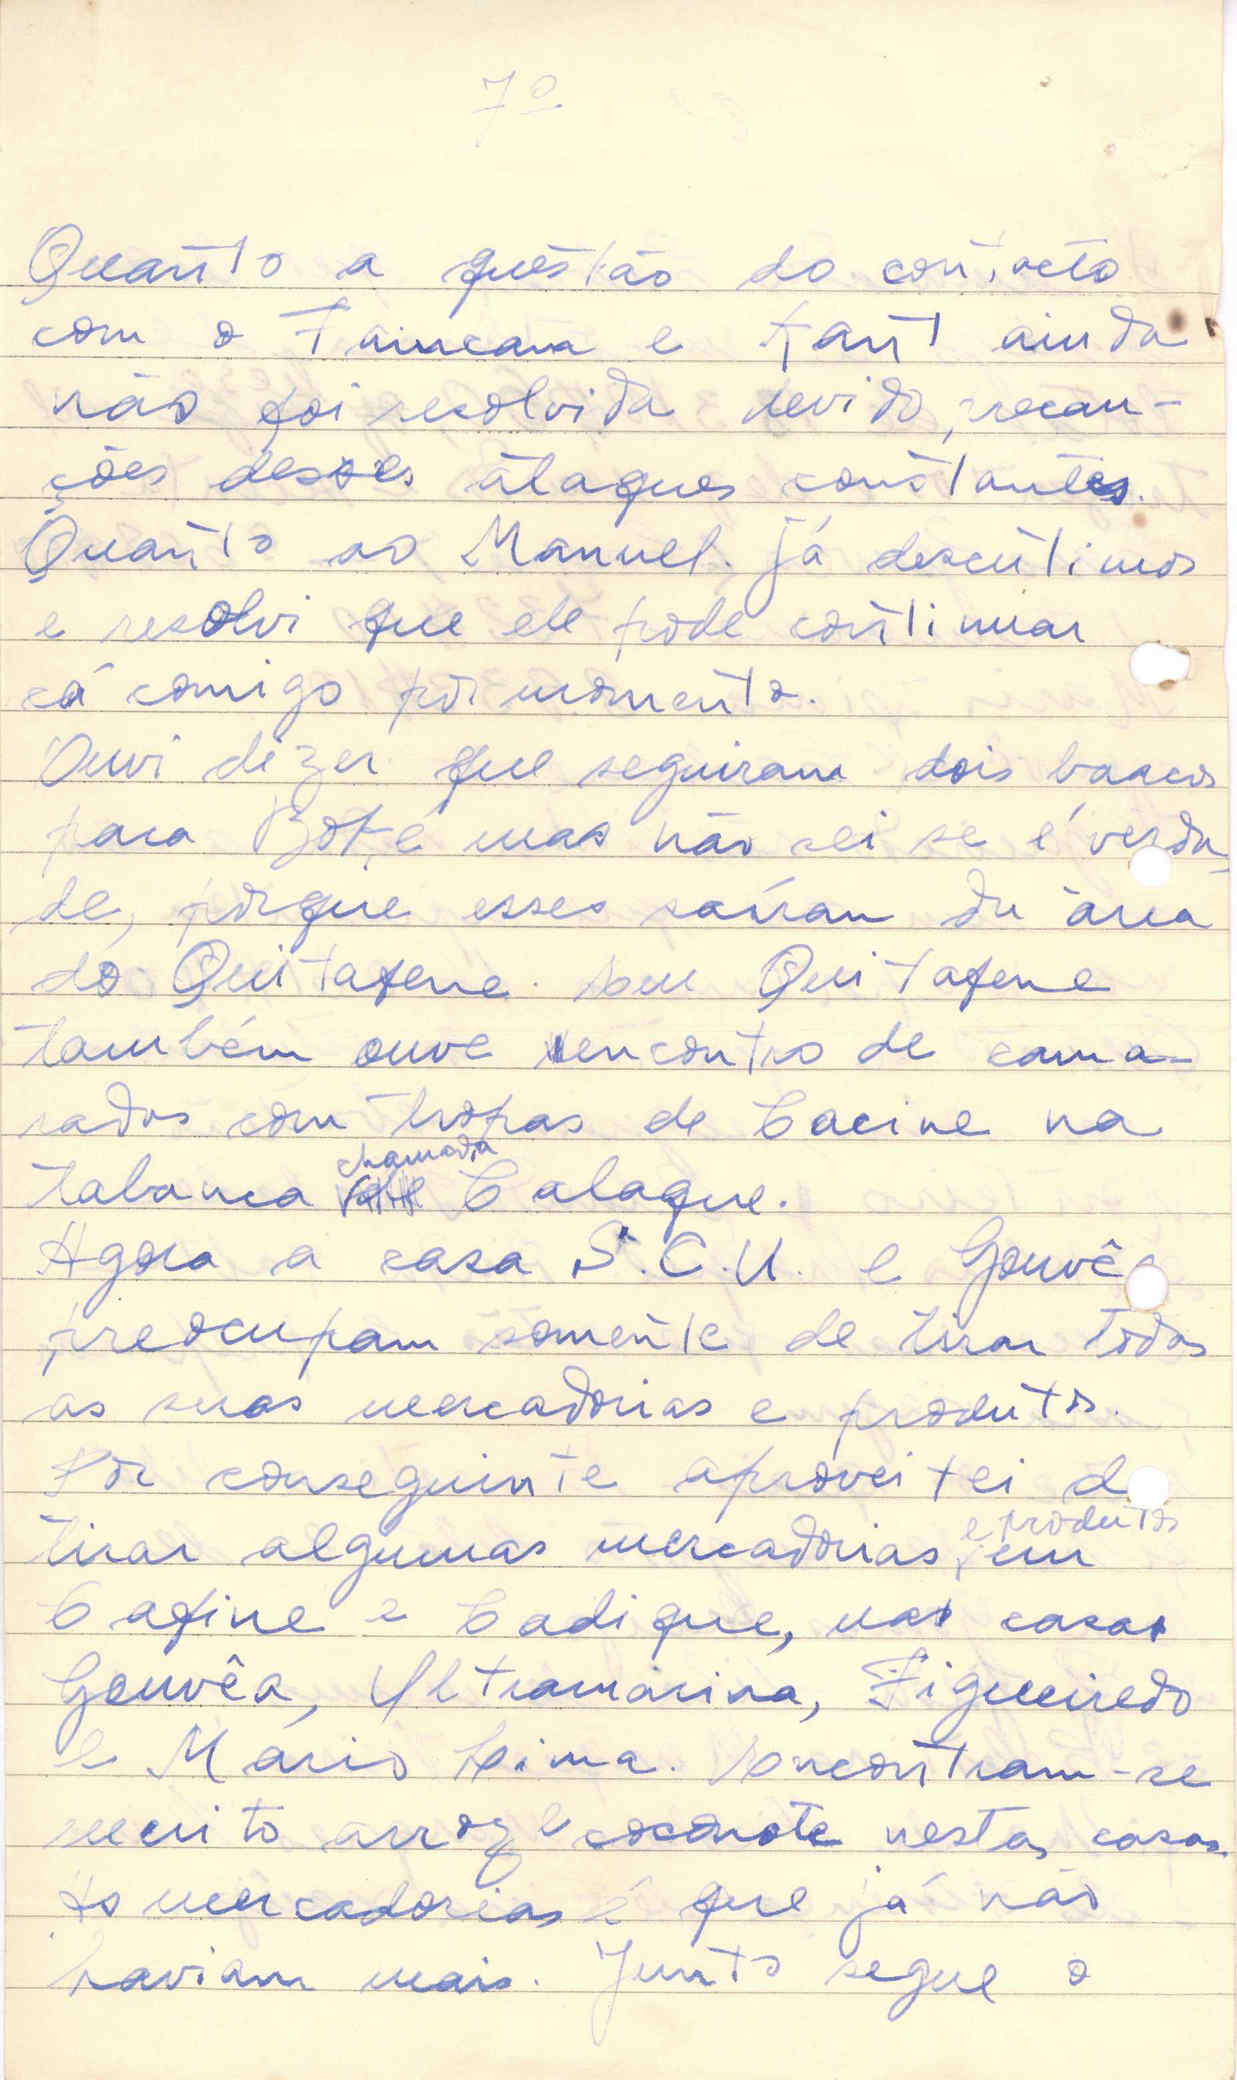 7º
Quanto a questão do contacto
com o e ainda
não foi resolvida devido, precau-
ções desses ataques constantes.
Quanto ao Manuel. Já descutimos
e resolvi que ele pode continuar
cá comigo por momento.
Ouvi dizer que seguiram dois barcos
para mas não sei se é verda-
de, porque esses saíram da área
do Quitafene. Em Quitafene
também ouve encontro de cama-
radas com tropas de Cacine na
tabanca chamada Calaque.
Agora a casa S.C.U. e Gouvêa
preocupam somente de tirar todas
as suas mercadorias e produtos.
Por conseguinte aproveitei d
tirar algumas mercadorias e produtos em
Cafine e Cadique, nas casas
Gouvêa, Ultramarina, Figueiredo
e Mario Lima. Encontram-se
muito arroz e coconote nestas casas.
As mercadorias é que já não
haviam mais. Junto segue o